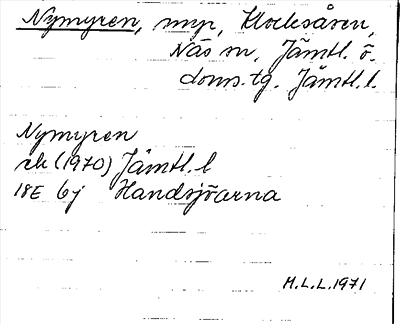 Nymyren, myr, Klocksåsen,
Näs sn, Jämtl. ö.
doms.tg. Jämtl.l.
Nymyren
ek (1970) Jämtl.l
18E 6j Handsjöarna
M.L.L.1971